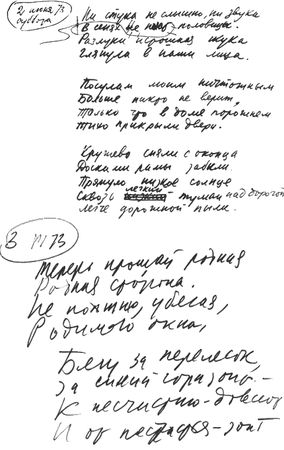 2 июня 73
суббота
Ни стука не слышно, ни звука
В сенях не половицы.
Разлуки игрошная мука
Глянула в наши лица.
Посулам моим ничтожным
Больше никто не верит,
Только что в доме порожнем
Тихо прикрыли двери.
Кружево сняли с оконца
Досками рамы забили.
Прянуло низкое солнце
Сквозь легкий туман над дорогой
легче дорожной пыли.
3 VI 73
Теперь прощай родная
Родная сторона.
Не помню, убегая,
Родимого окна,
Бегу за перелесок,
За синий горизонт —
К несчастью —
И от — зонт